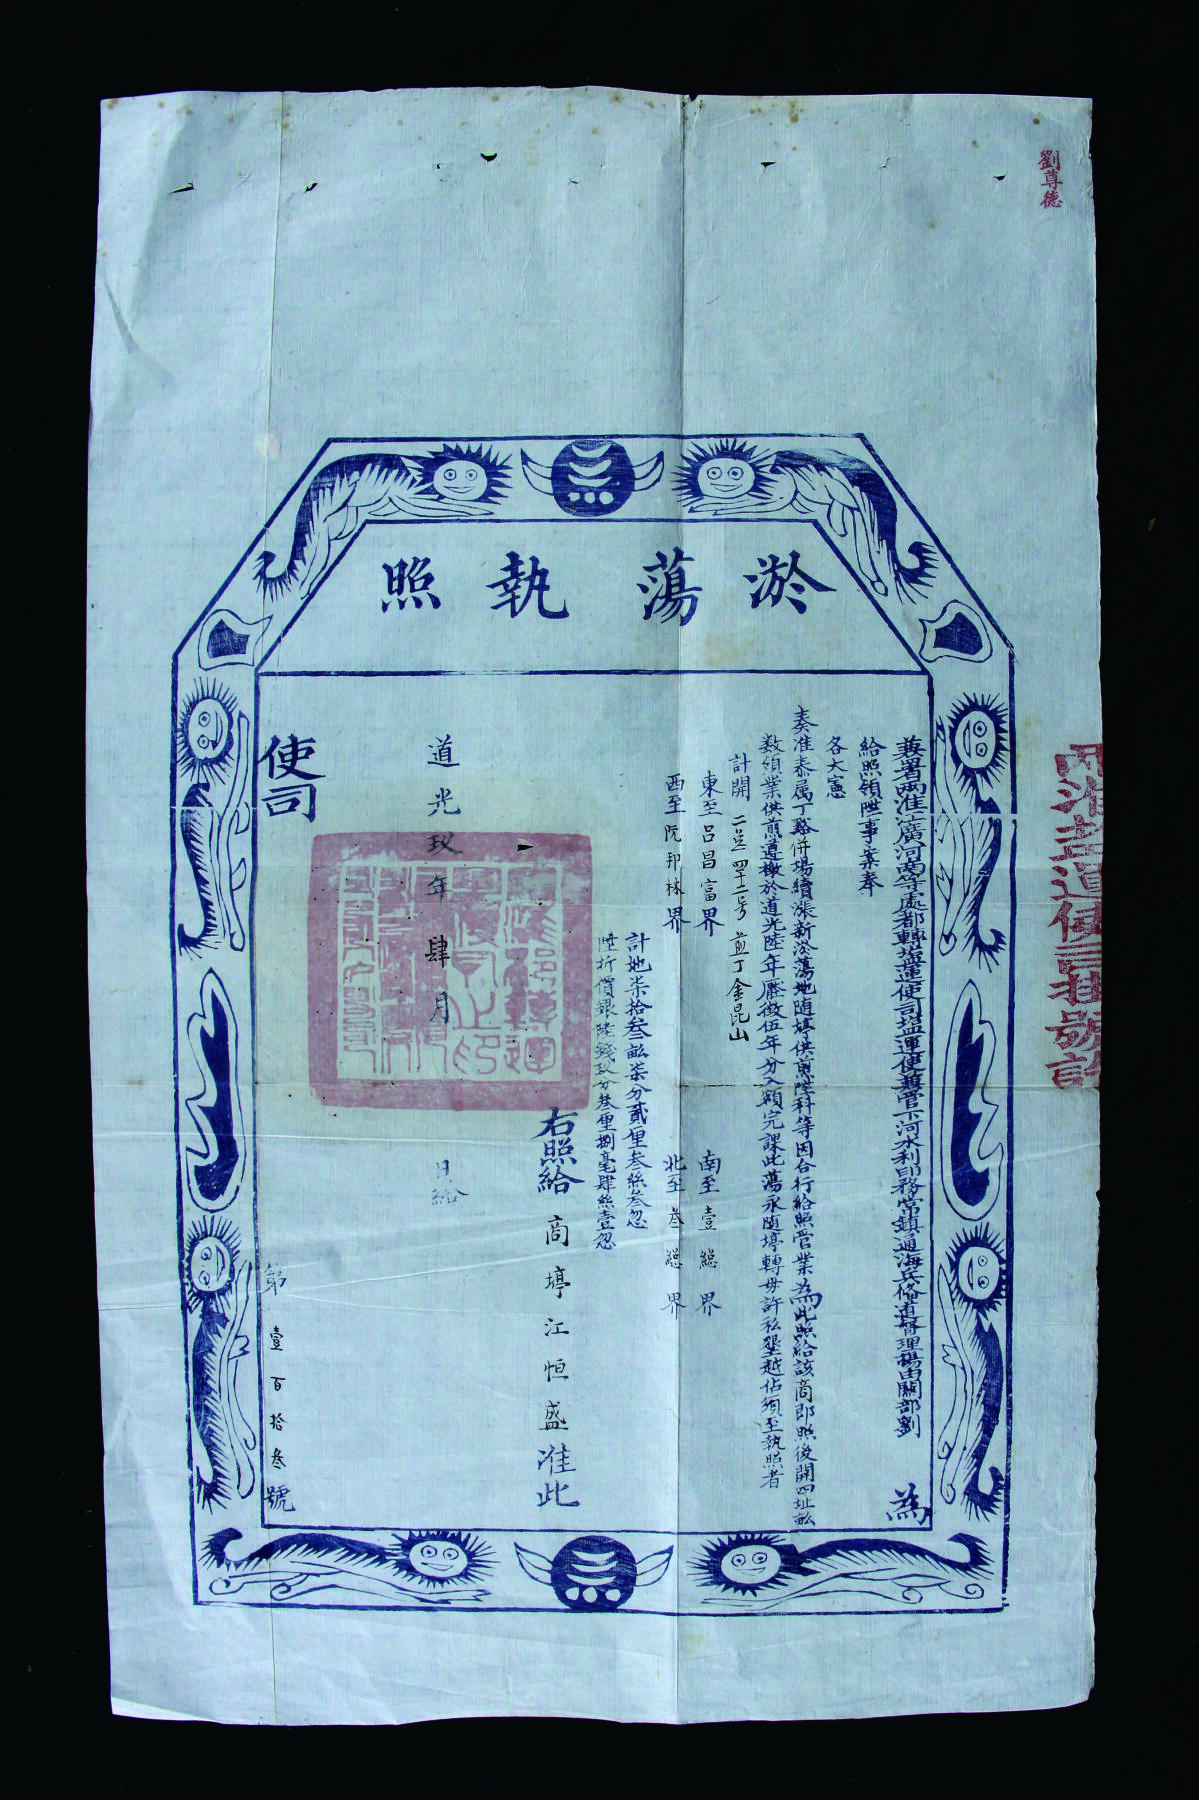 劉尊德
淤蕩執照
兼署兩淮江廣河南等處都轉塩運使司塩運使兼管下河水利印務常鎮通海兵備道督理揚由關部劉 為
給照領陞事案奉
各大憲
奏准泰属丁谿併場續漲新淤蕩地随䇕供煎陞科等因合行給照管業為此照給該商即照後開四址畝
数領業供煎遵檄於道光陸年壓徵伍年分入額完課此蕩永随䇕轉毋許私墾越佔須至執照者
計開 二总四十二号 煎丁金昆山
東至吕昌富界 南至壹緫界
西至阮邦林界 北至叁緫界
計地柒拾叁畝柒分貳厘叁絲叁忽
陞折價銀陸錢玖分叁厘捌毫肆絲壹忽
右照給商䇕江恒盛准此
道光玖年肆月 日給
使司
第壹百拾叁號